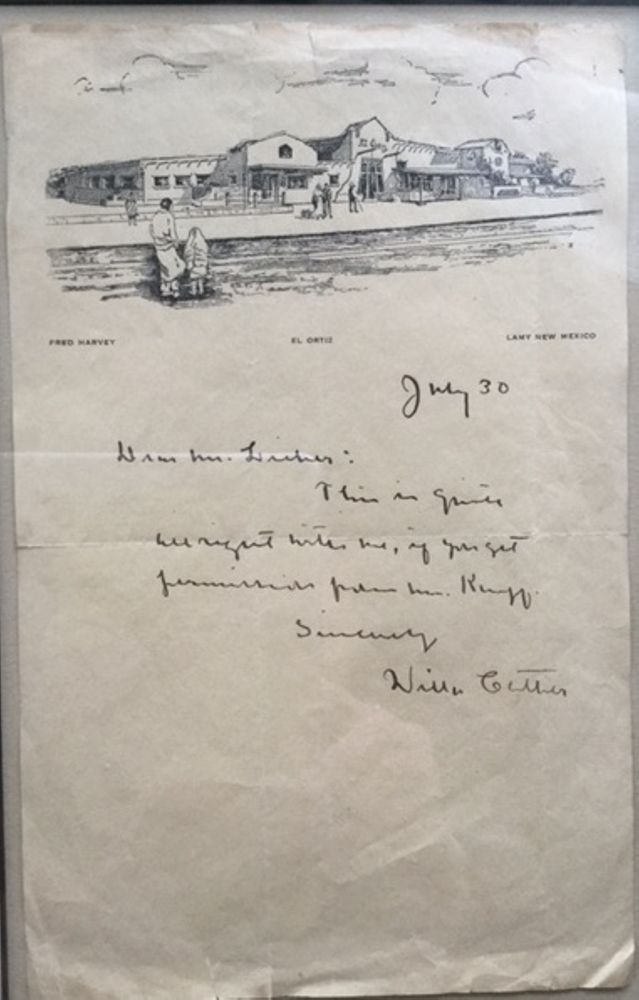 FRED HARVEY EL ORTIZ LAMY NEW MEXICO
July 30
Dear Mr.
This is quite
all right with me, if you get
permission from Mr. Knopf.
Sincerely
Willa Cather